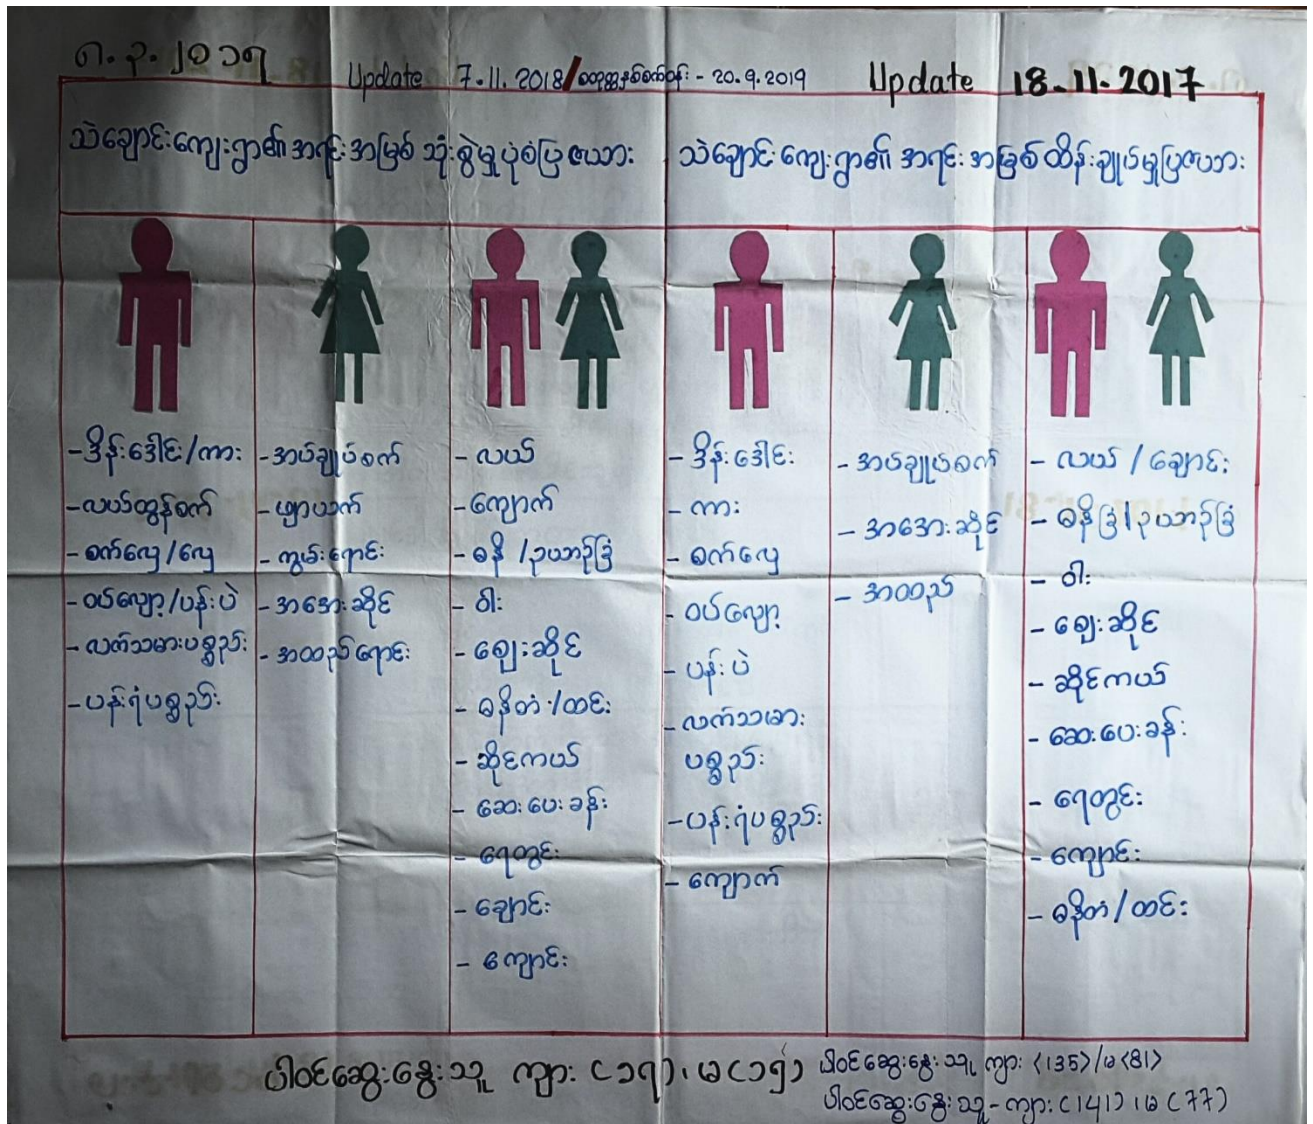 ၈.၃.၂၀၁၇
Update 7.11.2018/စတုတ္ထနှစ်စက်ဝန်း - 20.9.2019
Update 18.11.2017
သဲချောင်းကျေးရွာ၏ အရင်းအမြစ် သုံးစွဲမှုပုံစံပြဇယား
သဲချောင်းကျေးရွာ၏ အရင်းအမြစ်ထိန်းချုပ်မှုပြဇယား
-ဒိန်းဒေါင်း/ကား
-လယ်ထွန်စက်
-စက်လှေ/လှေ
-ဝပ်လျှော့/ပန်းပဲ
-လက်သမားပစ္စည်း
-ပန်းရံပစ္စည်း
-အပ်ချုပ်စက်
-ဖျာယက်
-ကွမ်းရောင်း
-အအေးဆိုင်
-အထည်ရောင်း
- လယ်
-ကျောက်
-ဓနိ/ဥယာဉ်ခြံ
- ဝါး
- ဈေးဆိုင်
- ဓနိတံ/ထင်း
- ဆိုင်ကယ်
- ဆေးပေးခန်း
- ရေတွင်း
- ချောင်း
- ကျောင်း
- ဒိန်းဒေါင်း
- ကား
- စက်လှေ
- ဝပ်လျှော့
- ပန်းပဲ
-လက်သမား
ပစ္စည်း
-ပန်းရံပစ္စည်း
- ကျောက်
- အပ်ချုပ်စက်
- အအေးဆိုင်
- အထည်
- လယ် / ချောင်း
- ဓနိခြံ/ဥယာဉ်ခြံ
- ဝါး
- ဈေးဆိုင်
- ဆိုင်ကယ်
- ဆေးပေးခန်း
- ရေတွင်း
- ကျောင်း
- ဓနိတံ/ထင်း
ပါဝင်ဆွေးနွေးသူ ကျား (၁၇)၊ မ (၁၅)
ပါဝင်ဆွေးနွေးသူ ကျား (135)/မ(81)
ပါဝင်ဆွေးနွေးသူ - ကျား (141)၊ မ (77)